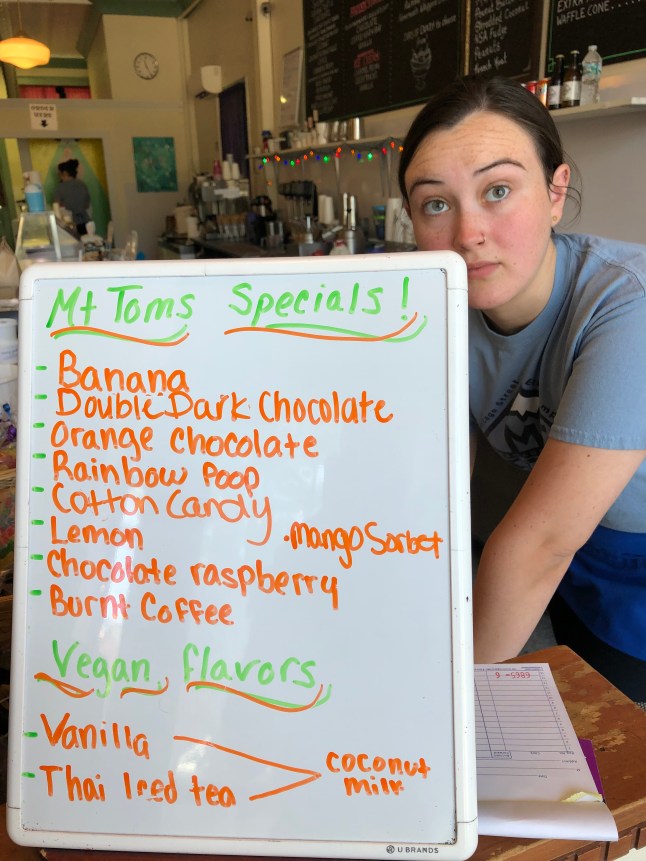 EXTRA
WAFFLE CONE.....
Shredded Coconut
Peanuts
Mt Toms Specials!
- Banana
- Double Dark Chocolate
- Orange Chocolate
- Rainbow Poop
- Cotton Candy
- Lemon
·mango Sorbet
- Chocolate raspberry
- Burnt Coffee
Vegan flavors
- Vanilla
- Thai Iced tea
coconut
milk
U BRANDS
6865-6